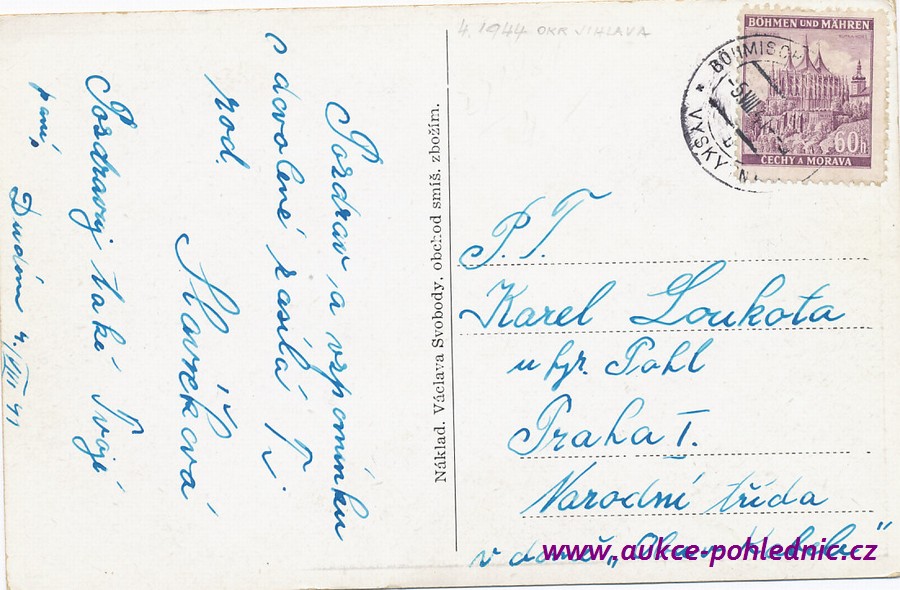 4. 1944 OKR JIHLAVA
BÖHMEN UND MÄHREN
60h
ČECHY A MORAVA
BÖHMISCH
VYSKYTN
Pozdrav, a vzpomínku
s dovolené zasílá Ti
rod. Slavíčkova
Pozdravuj také Tvoji
paní,
Dudín 4/VIII 41
Náklad. Václava Svobody, obchod smíš. zbožím.
P. T.
Karel Loukota
u fy. Pohl
Praha I.
Narodní třída
v domě „
www.aukce-pohlednic.cz